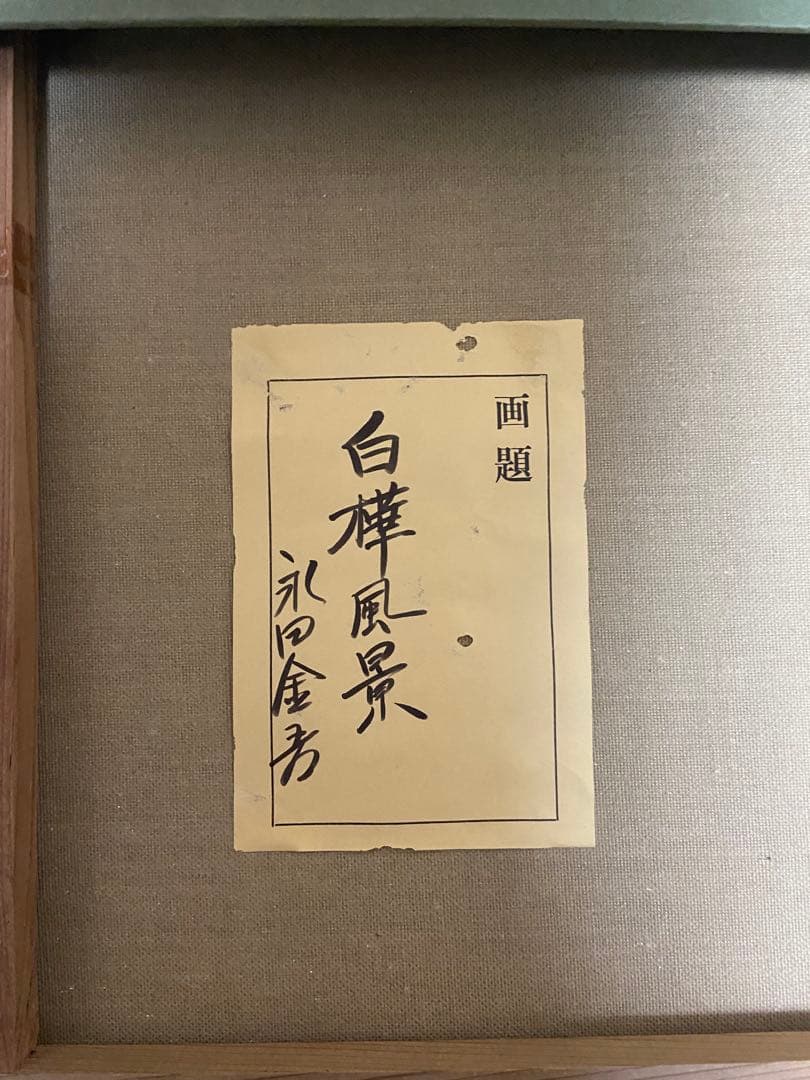 画題
白樺風景
永田金吾